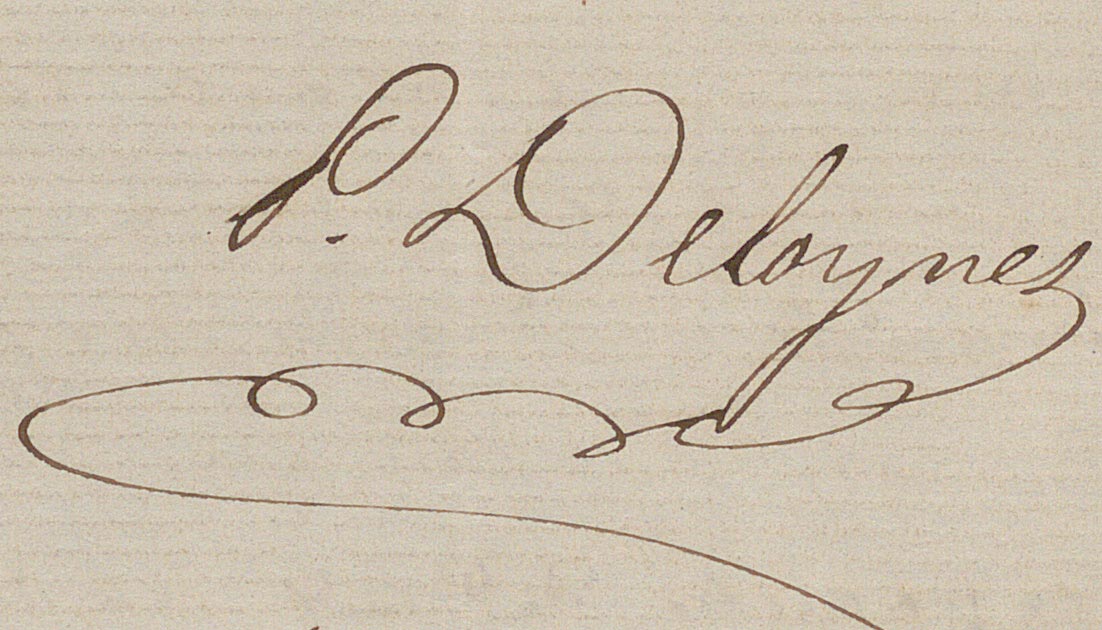 P. Deloynes